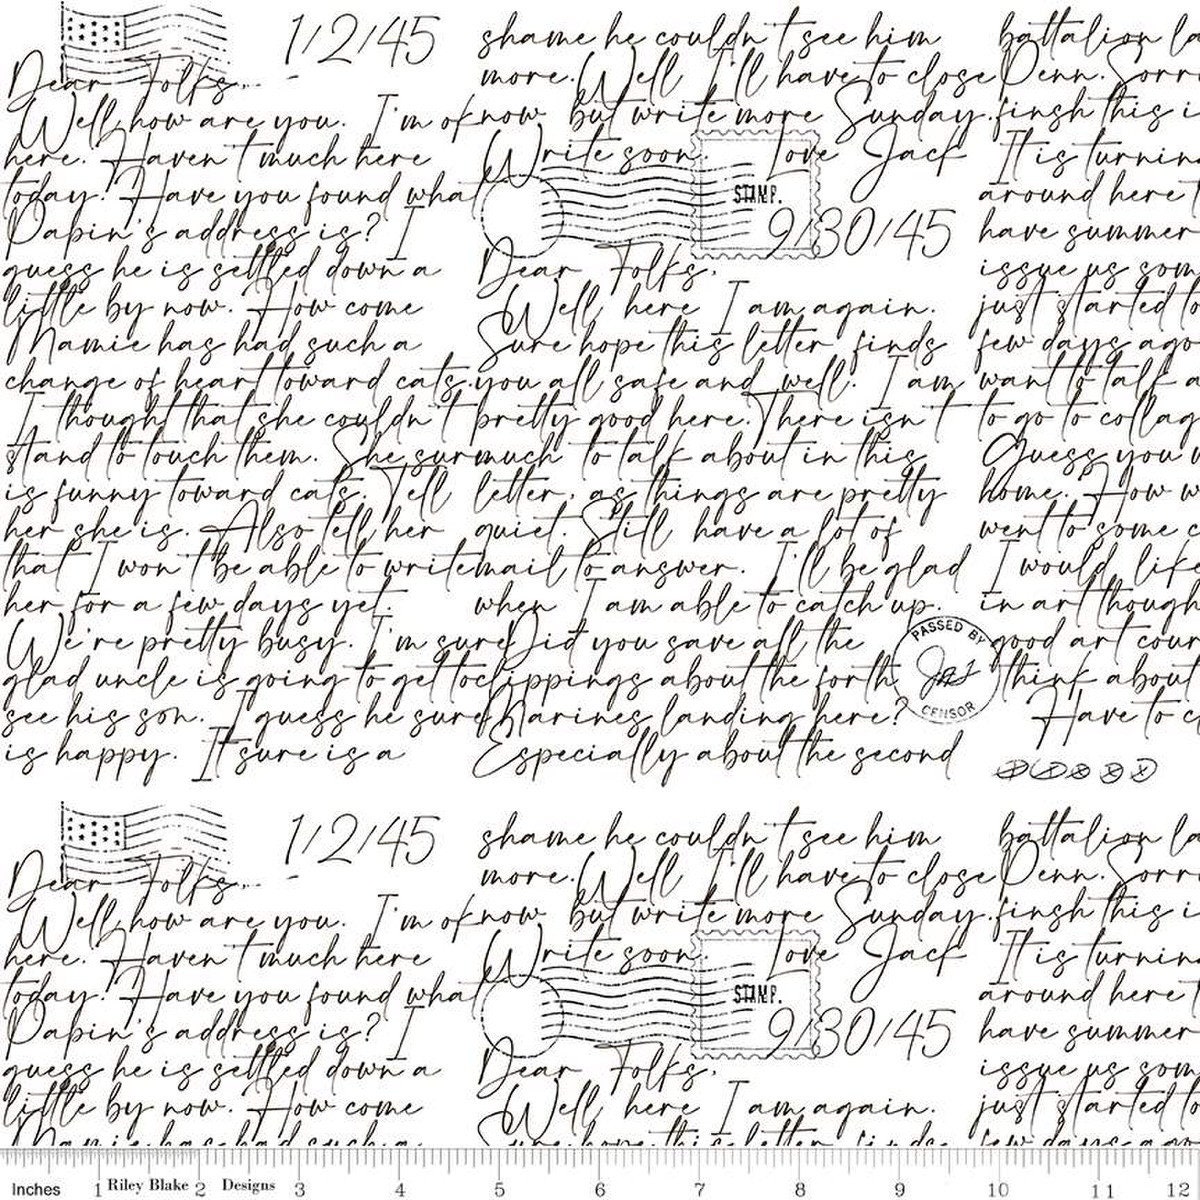 1/2/45
Dear Folks,
Well how are you. I'm ok
here. Haven't much here
today. Have you found what
Dabin's address is? I
guess he is settled down a
little by now. How come
Mamie has had such a
change of heart toward cats.
I thought that she couldn't
stand to touch them. She sur
is funny toward cats. Tell
her she is. Also tell her
that I won't be able to write
her for a few days yet.
We're pretty busy. I'm sure
glad uncle is going to get to
see his son. I guess he sure
is happy. It sure is a
shame he couldn't see him
more. Well I'll have to close
now but write more Sunday.
Write soon. Love Jack
STAMP.
9/30/45
Dear Folks,
Well here I am again.
Sure hope this letter finds
you all safe and well. I am
pretty good here. There isn't
much to talk about in this
letter, as things are pretty
quiet. Still have a lot of
mail to answer. I'll be glad
when I am able to catch up.
Did you save all the
clippings about the forth
Marines landing here?
Especially about the second
PASSED BY
CENSOR
battalion la
Penn. Sorri
finsh this i
It is turnin
around here t
have summer
issue us som
just started to
few days ago
want to talk a
to go to collag
Guess you w
home. How w
went to some c
I would like
in art though
good art cour
think about
Have to c
1/2/45
Dear Folks,
Well how are you. I'm ok
here. Haven't much here
today. Have you found what
Dabin's address is? I
guess he is settled down a
little by now. How come
Mamie has had such a
shame he couldn't see him
more. Well I'll have to close
now but write more Sunday.
Write soon. Love Jack
STAMP.
9/30/45
Dear Folks,
Well here I am again.
Sure hope this letter finds
battalion la
Penn. Sorri
finsh this i
It is turnin
around here t
have summer
issue us som
just started to
few days ago
Inches 1 Riley Blake 2 Designs 3 4 5 6 7 8 9 10 11 12